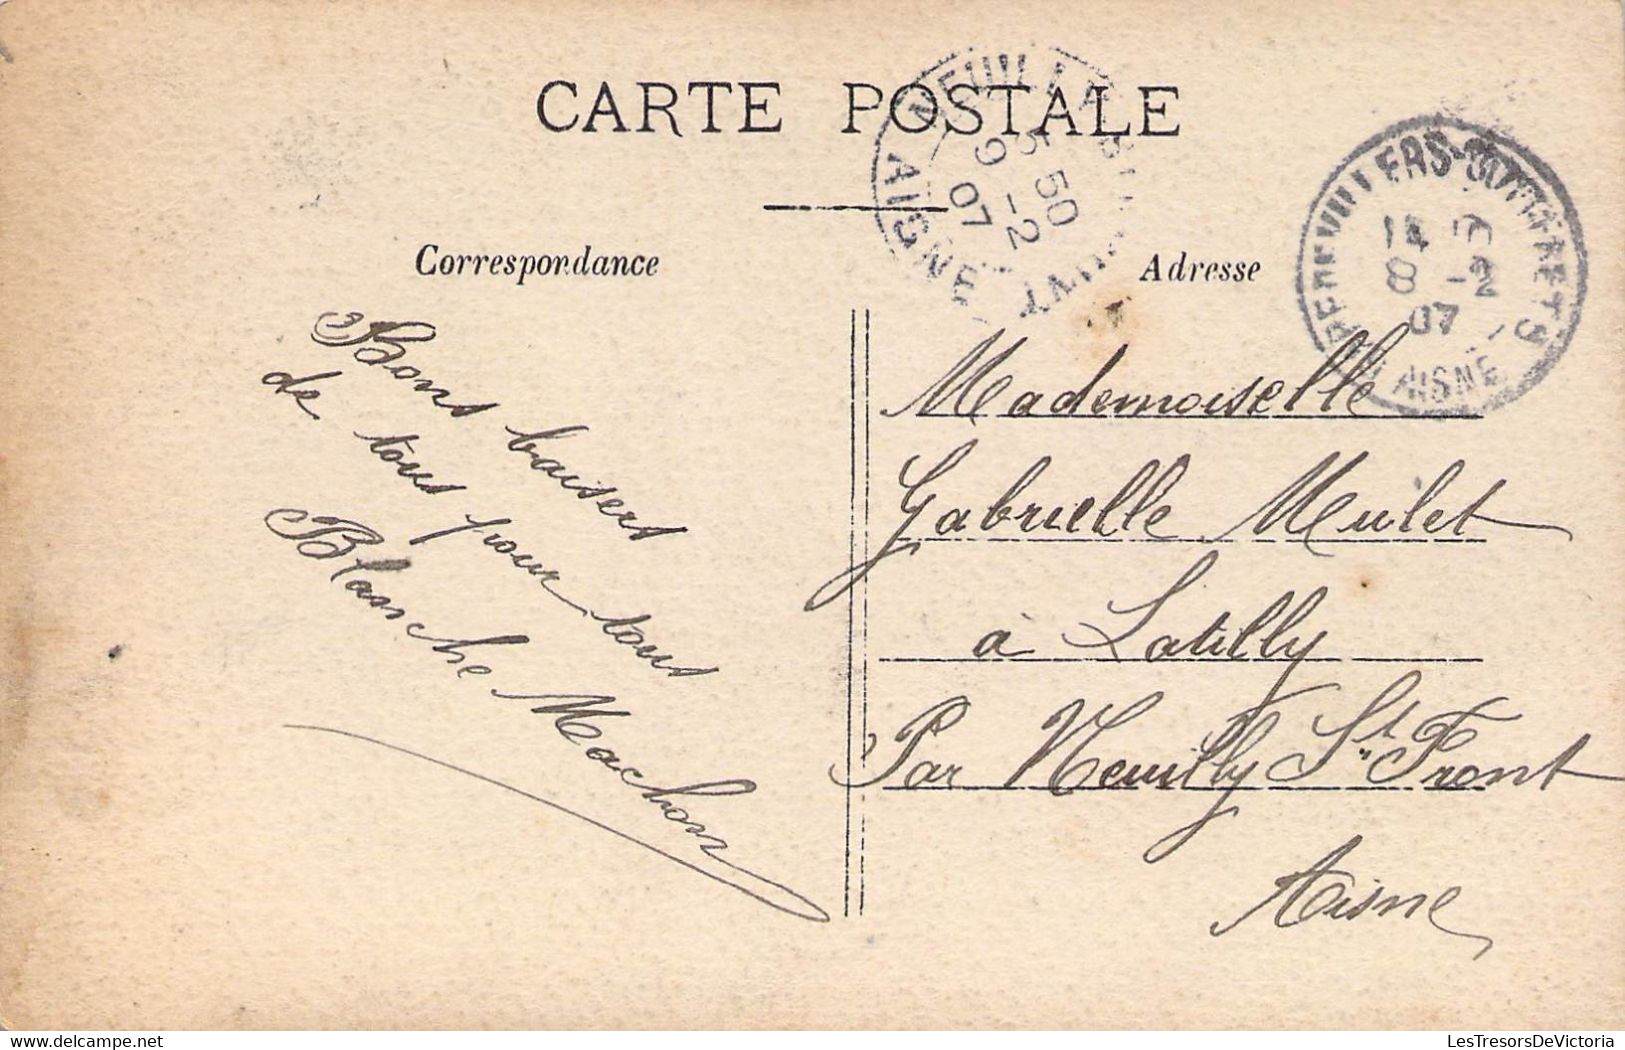 CARTE POSTALE
NEUILLY
5 50
9 -2
07
AISNE
8 -2
07
AISNE
Correspondance
Adresse
Bons baisers
de tous pour tous
Blanche Machon
Mademoiselle
Gabrielle Mulet
à Latilly
Par Neuilly St Front
Aisne
LesTresorsDeVictoria